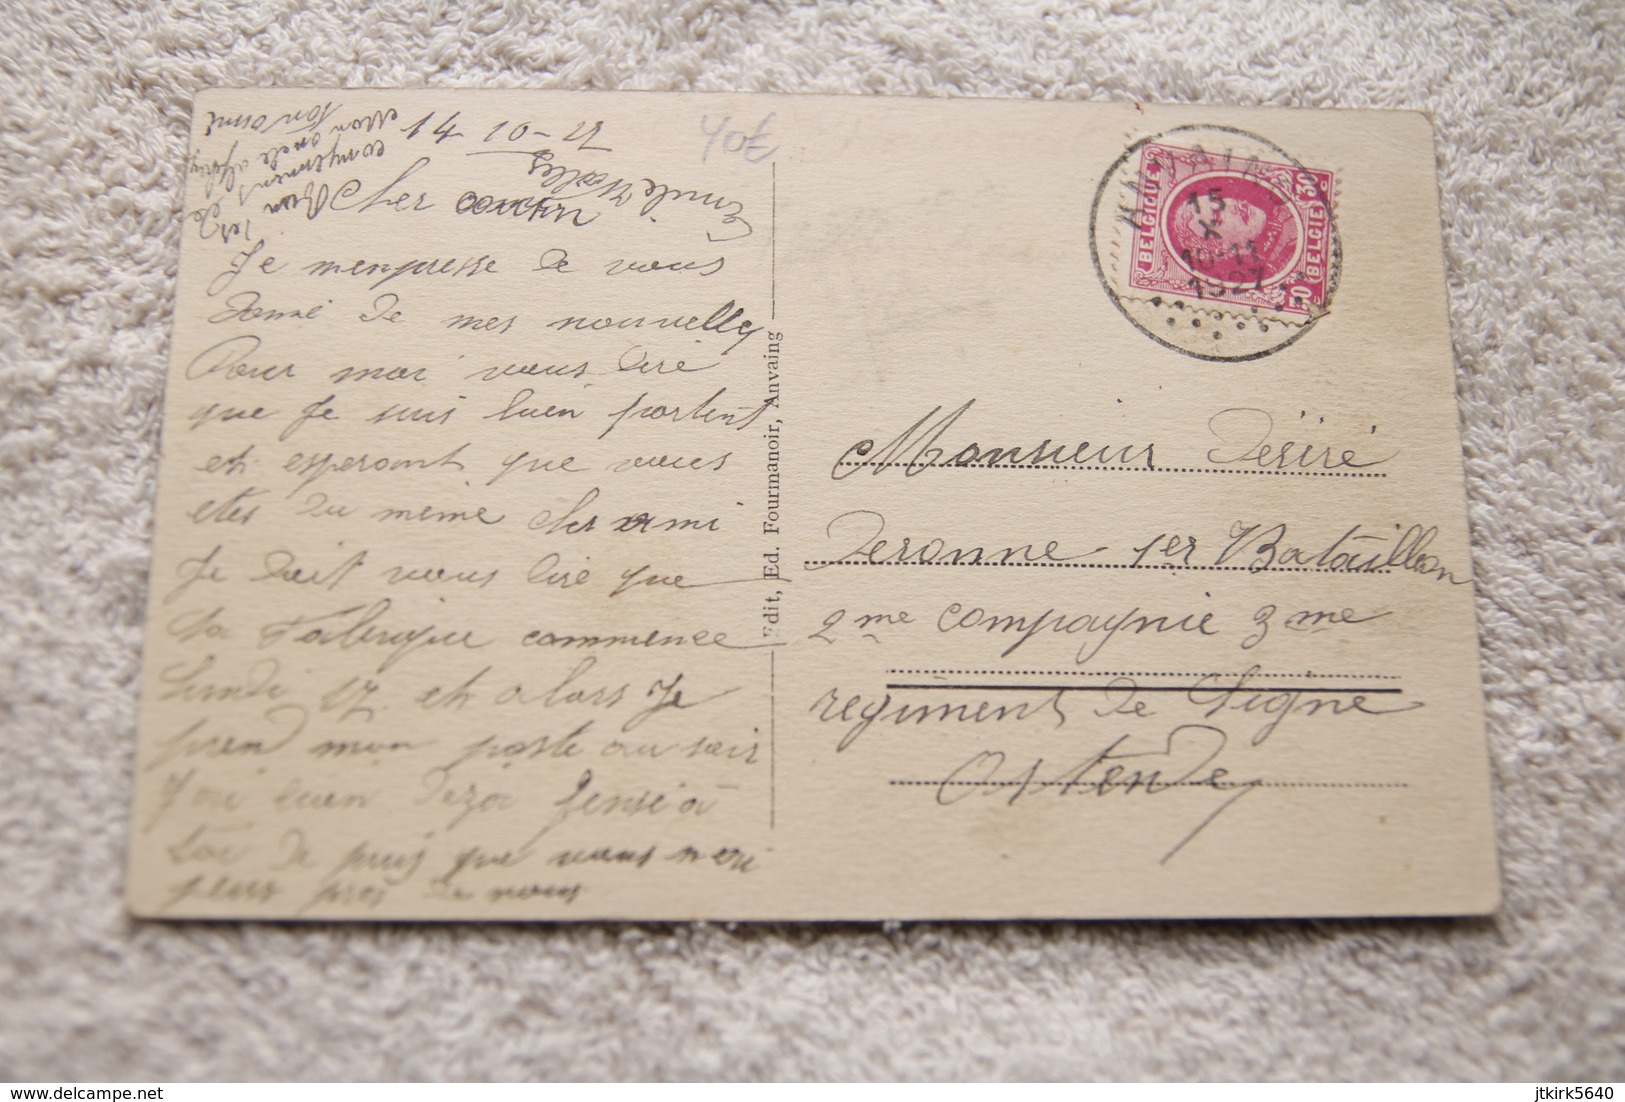 40€
14-10-27
Cher cousin
Je m'empresse de vous
donné de mes nouvelles
Pour moi vous diré
que Je suis bien portent
et esperant que vous
etes du même cher ami
Je doit vous diré que
la Fabrique commence
Lundi 17 et alors Je
prend mon poste au soir
J'ai bien deza pensé à
toi de puis que vous
plus pres de nous
Emile
les
compliment de
mon oncle
Ton ami
Edit, Ed. Fourmanoir, Anvaing
ANVAING
15
X
10-11
1927
BELGIQUE
BELGIE
30
30
c
Monsieur Désiré
Deronne 1er Bataillon
2me compagnie 3me
regiment de Ligne
Ostende
jtkirk5640